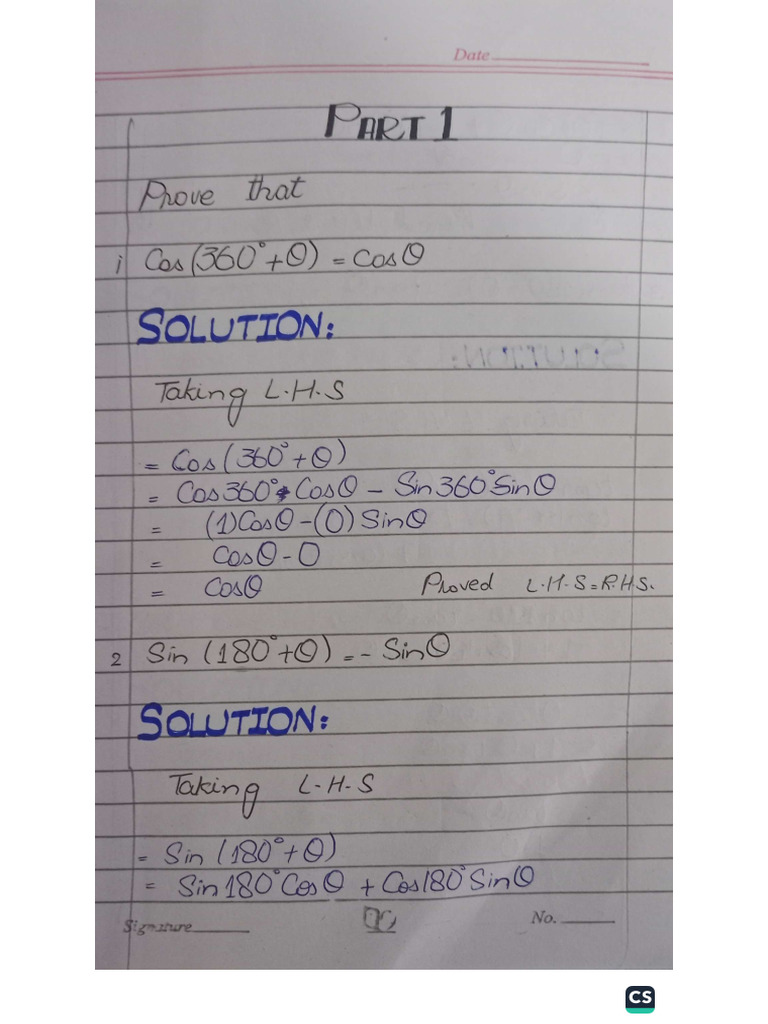 Date
PART 1
Prove that
i Cos(360°+θ) = Cosθ
SOLUTION:
Taking L.H.S
= Cos(360°+θ)
= Cos360° Cosθ - Sin360°Sinθ
= (1)Cosθ-(0)Sinθ
= Cosθ-0
= Cosθ Proved L.H.S=R.H.S.
2 Sin (180°+θ) = - Sinθ
SOLUTION:
Taking L-H-S
= Sin (180°+θ)
= Sin180°Cosθ + Cos180°Sinθ
Signature No.
CS